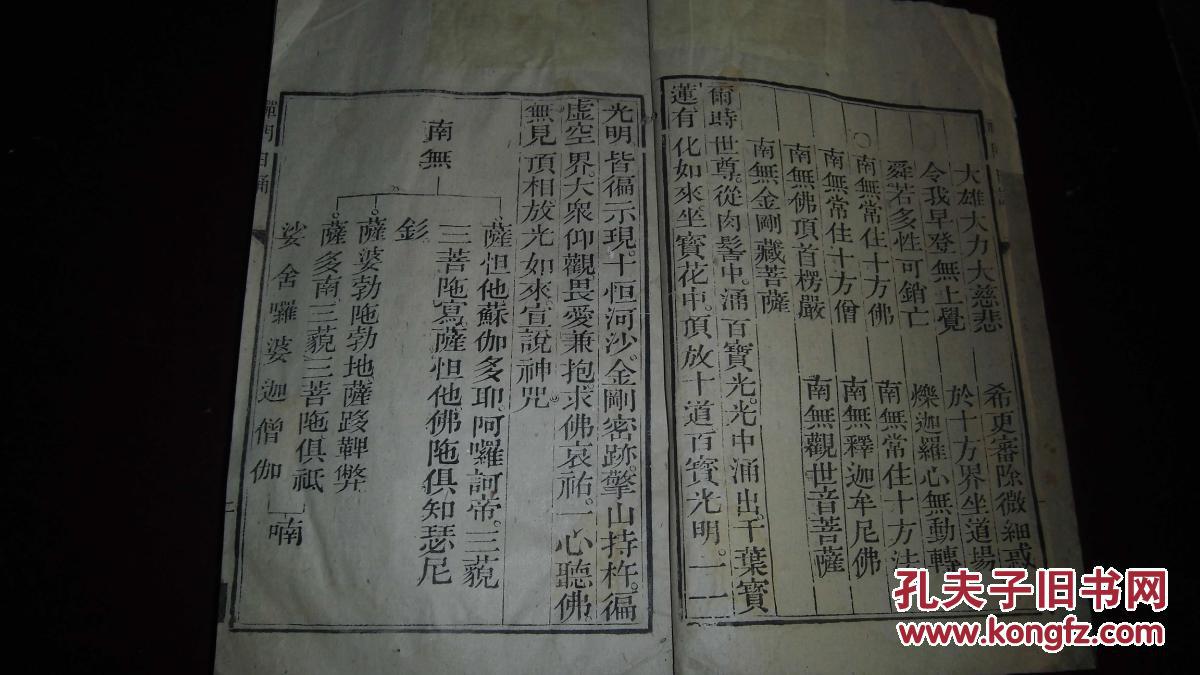 大雄大力大慈悲　希更審除微細惑
令我早登無上覺　於十方界坐道場
舜若多性可銷亡　爍迦羅心無動轉
○南無常住十方佛　南無常住十方法
南無常住十方僧　南無釋迦牟尼佛
南無佛頂首楞嚴　南無觀世音菩薩
南無金剛藏菩薩
爾時世尊。從肉髻中。涌百寶光。光中涌出。千葉寶
蓮。有化如來。坐寶花中。頂放十道百寶光明。一一
光明。皆徧示現。十恒河沙。金剛密跡。擎山持杵。徧
虛空界。大衆仰觀。畏愛兼抱。求佛哀祐。一心聽佛
無見頂相放光如來。宣說神咒。
南無
薩怛他蘇伽多耶。阿囉訶帝。三藐
三菩陁寫。薩怛他佛陁俱知瑟尼
釤
薩婆勃陁勃地薩跢鞞弊
薩多南三藐三菩陁俱祇
娑舍囉婆迦僧伽喃
日誦
孔夫子旧书网
www.kongfz.com